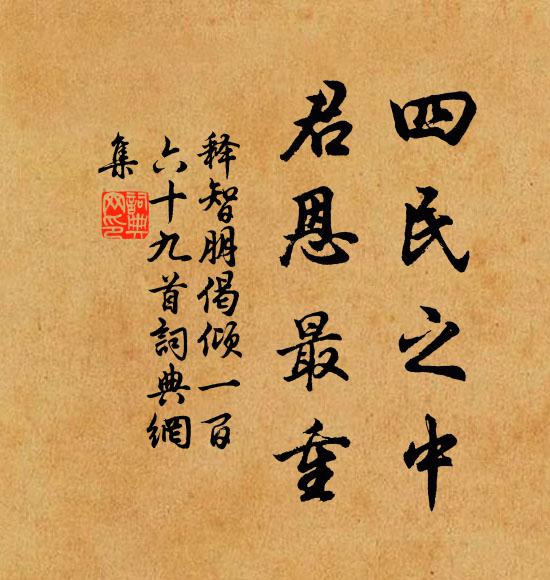 四民之中
君恩最重
释智朋偈倾一百
六十九首詞典網
集
詞典
网印